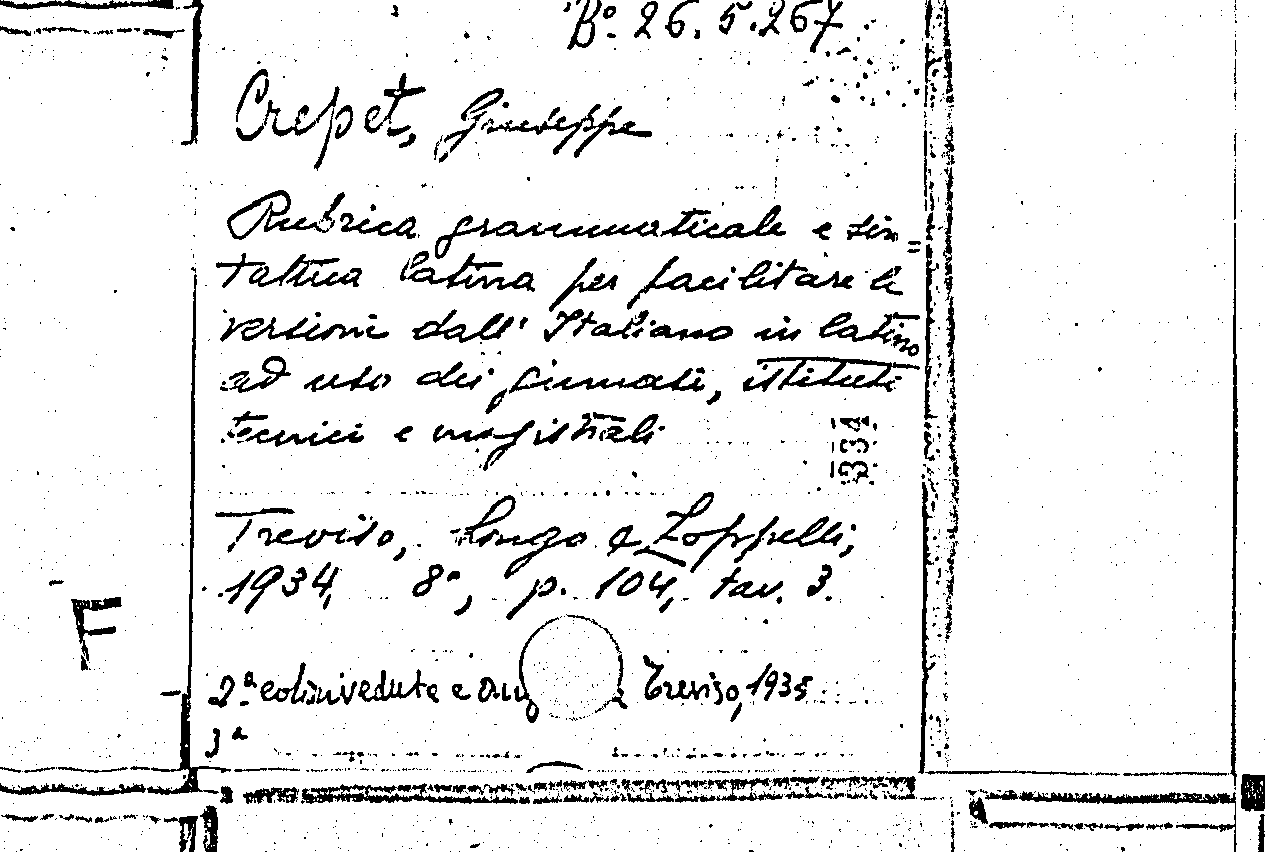 Bº. 26. 5. 267
Crepet, Giuseppe
Rubrica grammaticale e sin=
tattica latina per facilitare le
versioni dall' Italiano in latino
ad uso dei ginnasi, istituti
tecnici e magistrali
1334
Treviso, Longo e Zoppelli,
1934, 8º, p. 104, tav. 3.
2ª ediz. rivedute e Treviso, 1935
3ª
F